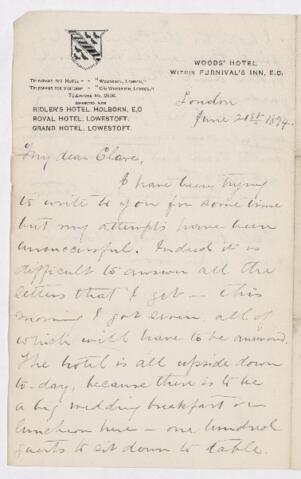 WOODS' HOTEL,
WITHIN FURNIVAL'S INN, E.C.
CONNECTED WITH
RIDLER'S HOTEL HOLBORN, E.C
ROYAL HOTEL, LOWESTOFT.
GRAND HOTEL, LOWESTOFT.
London
June 21st 1894.
My dear Clara,
I have been trying
to write to you for some time
but my attempts have been
unsuccessful. Indeed it is
difficult to answer all the
letters that I get — this
morning I got seven, all of
which will have to be answered.
The hotel is all upside down
to-day, because there is to be
a big wedding breakfast or
luncheon here — one hundred
guests to sit down to table.